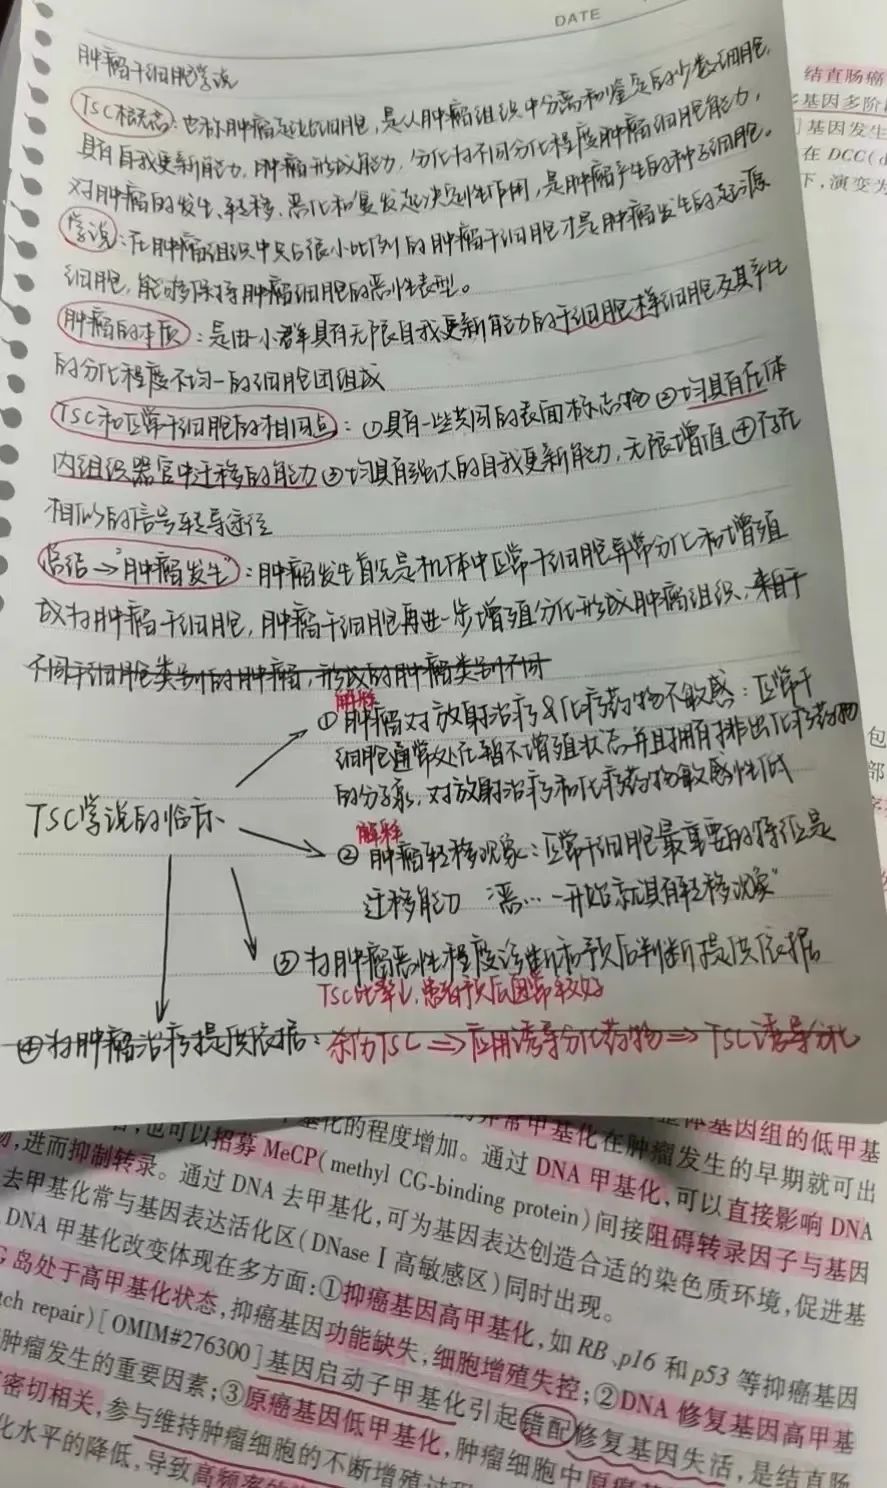 DATE
肿瘤干细胞学说
TSC概念：也称肿瘤起始细胞，是从肿瘤组织中分离和鉴定的少数细胞，
具有自我更新能力，肿瘤形成能力，分化为不同分化程度肿瘤细胞能力，
对肿瘤的发生、转移、恶化和复发起决定性作用，是肿瘤产生的种子细胞。
学说：在肿瘤组织中只占很小比例的肿瘤干细胞才是肿瘤发生的起源
细胞，能够保持肿瘤细胞的恶性表型。
肿瘤的本质：是由一小群具有无限自我更新能力的干细胞样细胞及其产生
的分化程度不均一的细胞团组成
TSC和正常干细胞的相同点：①具有一些共同的表面标志物②均具有在体
内组织器官中迁移的能力③均具有强大的自我更新能力，无限增殖④存在
相似的信号转导途径
总结→"肿瘤发生"：肿瘤发生首先是机体中正常干细胞异常分化和增殖
成为肿瘤干细胞，肿瘤干细胞再进一步增殖分化形成肿瘤组织、来自于
不同干细胞类别的肿瘤，形成的肿瘤类别不同
解释
①肿瘤对放射治疗&化疗药物不敏感：正常干
细胞通常处在暂不增殖状态并且拥有排出化疗药物
的分子泵，对放射治疗和化疗药物敏感性低
TSC学说的临床
解释
②肿瘤转移现象：正常干细胞最重要的特征是
迁移能力 "恶…一开始就具有转移现象"
③为肿瘤恶性程度诊断和预后判断提供依据
TSC比率↓，患者预后通常较好
④为肿瘤治疗提供依据：杀伤TSC⇒应用诱导分化药物⇒TSC诱导分化
结直肠癌
基因多阶
]基因发生
在DCC(d
下，演变为
包
部
基化的程度增加。
异常甲基化在肿瘤发生的早期就可出
整体基因组的低甲基
，也可以招募MeCP(methyl CG-binding protein)间接阻碍转录因子与基因
，进而抑制转录。通过DNA去甲基化，可为基因表达创造合适的染色质环境，促进基
通过DNA甲基化，可以直接影响DNA
去甲基化常与基因表达活化区(DNase I高敏感区)同时出现。
DNA甲基化改变体现在多方面：①抑癌基因高甲基化，如RB、p16和p53等抑癌基因
G岛处于高甲基化状态，抑癌基因功能缺失，细胞增殖失控；②DNA修复基因高甲基
tch repair)[OMIM#276300]基因启动子甲基化引起错配修复基因失活，是结直肠
肿瘤发生的重要因素；③原癌基因低甲基化，肿瘤细胞中原癌
密切相关，参与维持肿瘤细胞的不断增殖过程
化水平的降低，导致高频率的